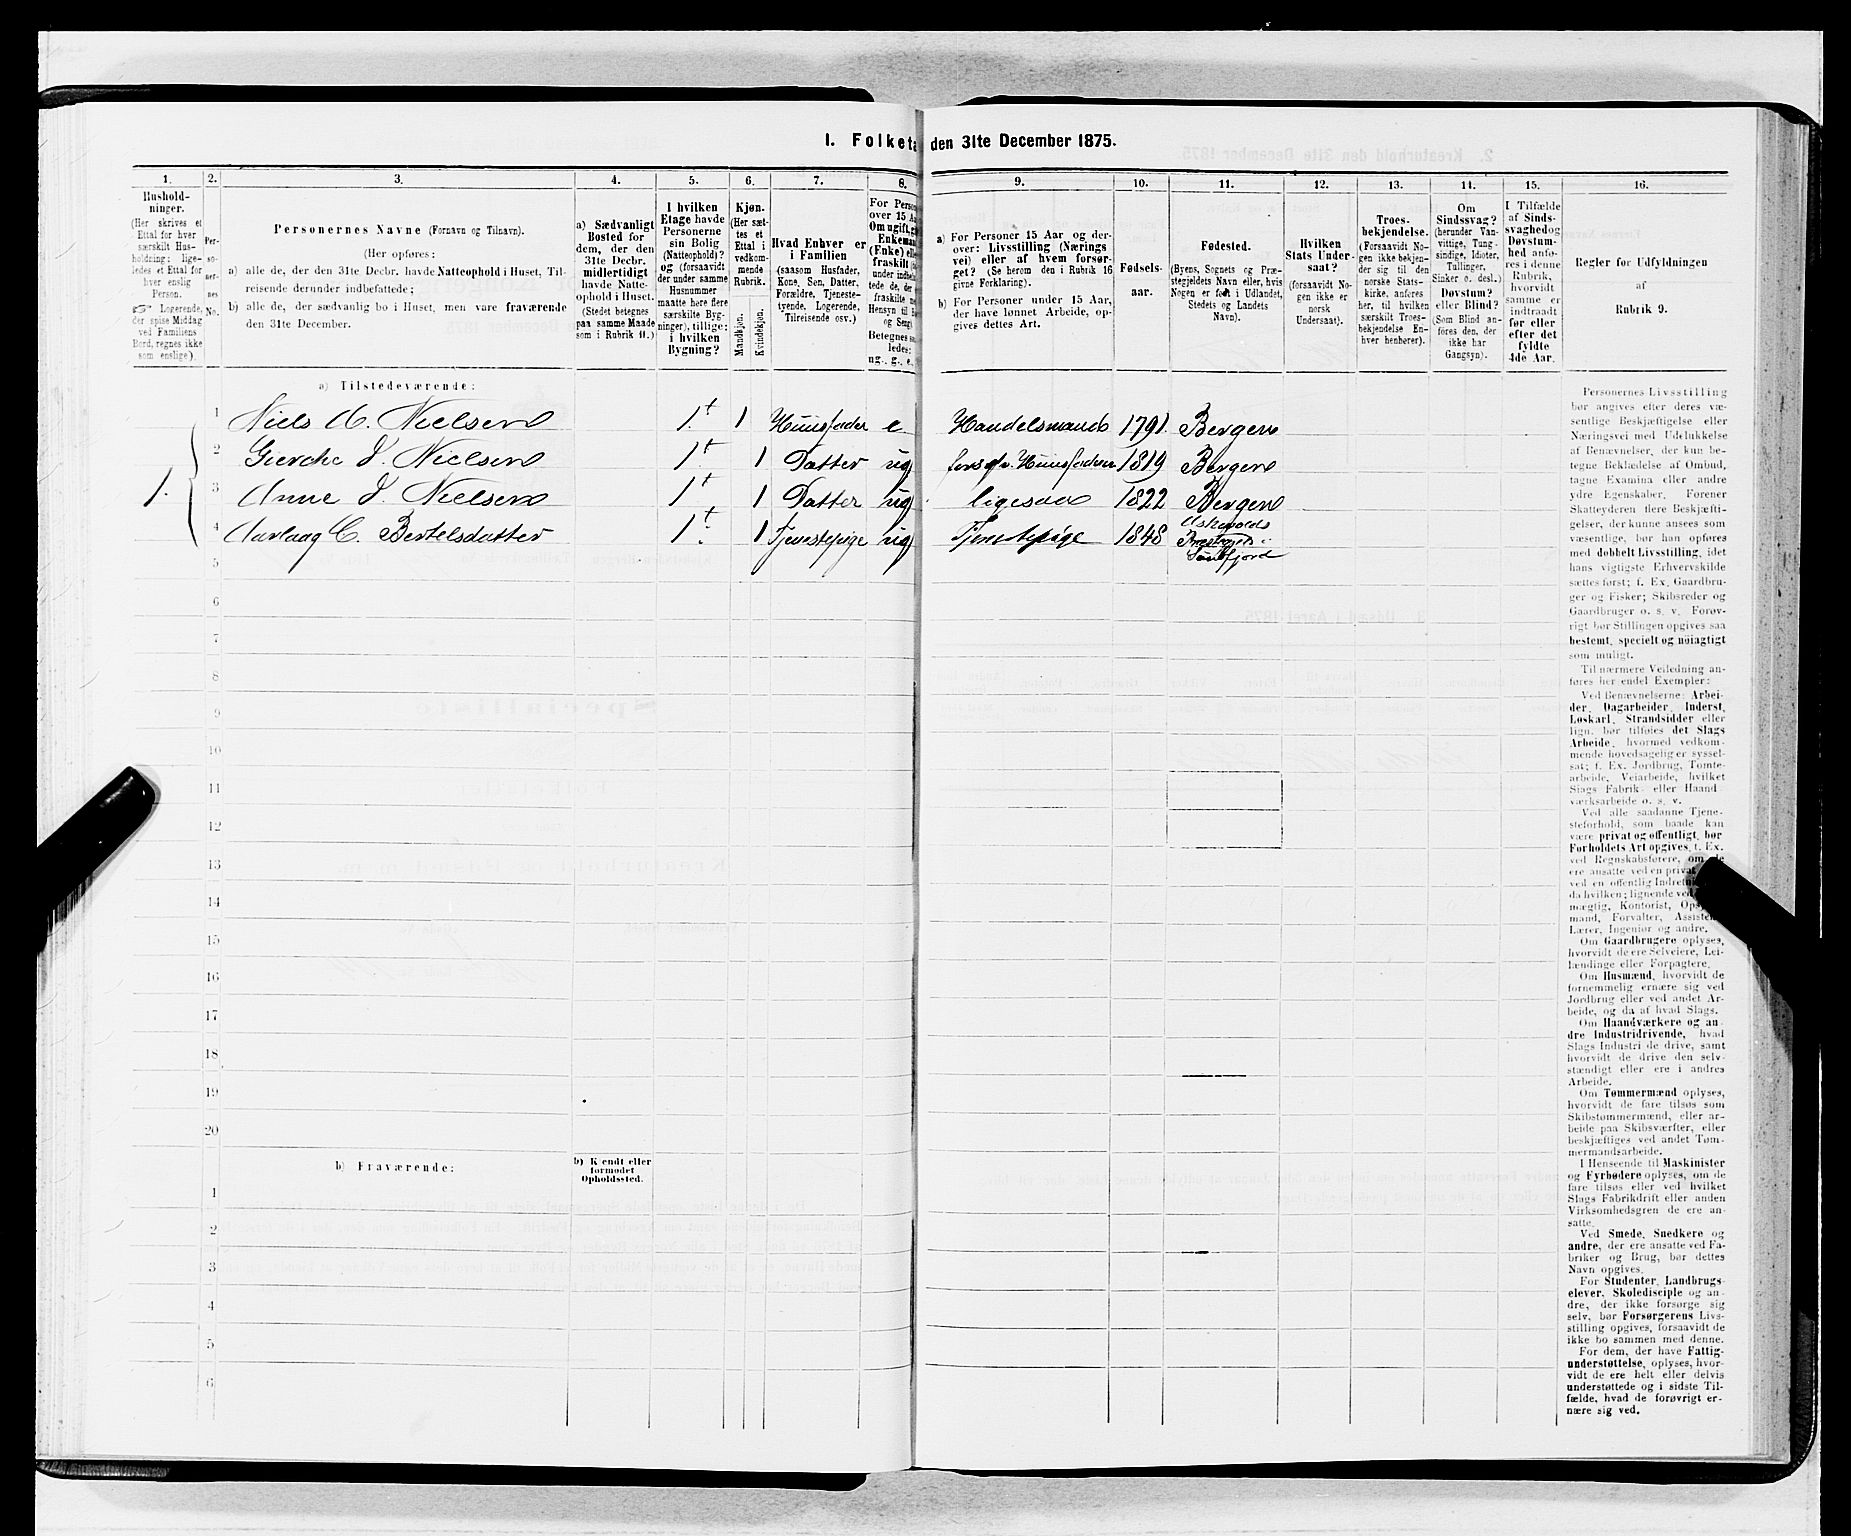 1. Folketæ den 31te December 1875.
1. 2. 3. 4. 5. 6. 7. 8. 9. 10. 11. 12. 13. 14. 15. 16.
Hushold-
ninger.
(Her skrives et
Ettal for hver
særskilt Hus-
holdning; lige-
ledes et Ettal for
hver enslig
Person.
☞ Logerende,
der spise Middag
ved Familiens
Bord, regnes ikke
som enslige).
Per-
so-
ner-
nes
No.
Personernes Navne (Fornavn og Tilnavn).
(Her opføres:
a) alle de, der den 31te Decbr. havde Natteophold i Huset, Til-
reisende derunder indbefattede;
b) alle de, der sædvanlig bo i Huset, men vare fraværende
den 31te December.
a) Sædvanligt
Bosted for
dem, der den
31te Decbr.
midlertidigt
havde Natte-
ophold i Huset.
(Stedet betegnes
paa samme Maade
som i Rubrik 11.)
I hvilken
Etage havde
Personerne
sin Bolig
(Natteophold)?
og (forsaavidt
der under samme
Husnummer
maatte høre flere
særskilte Byg-
ninger), tillige:
i hvilken
Bygning?
Kjøn.
(Her sæt-
tes et
Ettal i
vedkom-
mende
Rubrik.
Mandkjøn.
Kvindekjøn.
Hvad Enhver er
i Familien
(saasom Husfader,
Kone, Søn, Datter,
Forældre, Tjeneste-
tyende, Logerende,
Tilreisende osv.)
For Person
over 15 Aa
Om ugift, gi
Enkeman
(Enke) elle
fraskilt
under indbe
tede de, der
fraskilte
Hensyn til B
og Seng)
Betegnes
ledes:
ug., g., e.
a) For Personer 15 Aar og der-
over: Livsstilling (Nærings
vei) eller af hvem forsør-
get? (Se herom den i Rubrik 16
givne Forklaring).
b) For Personer under 15 Aar,
der have lønnet Arbeide, op-
gives dettes Art.
Fødsels-
aar.
Fødested.
(Byens, Sognets og Præ-
stegjeldets Navn eller, hvis
Nogen er født i Udlandet,
Stedets og Landets
Navn).
Hvilken
Stats Under-
saat?
(forsaavidt No-
gen ikke er
norsk
Undersaat).
Troes-
bekjendelse.
(Forsaavidt No-
gen ikke bekjen-
der sig til den
norske Stats-
kirke, anføres
her, til hvilken
særskilt Troes-
bekjendelse En-
hver henhører).
Om
Sindssvag?
(herunder Van-
vittige, Tung-
sindige, Idioter,
Tullinger,
Sinker o. desl.)
Døvstum?
eller Blind?
(Som Blind an-
føres den, der
ikke har
Gangsyn).
I Tilfælde
af Sinds-
svaghed og
Døvstum-
hed anfø-
res i denne
Rubrik,
hvorvidt
samme er
indtraadt
før eller
efter det
fyldte
4de Aar.
Regler for Udfyldningen
af
Rubrik 9.
a) Tilstedeværende:
1 Niels M. Nielsen 1t. 1 Huusfader e Handelsmand 1791. Bergen
2 Giertche J. Nielsen 1t. 1 Datter ug fors. af v. Huusfaderen 1819 Bergen
1. 3 Anne J. Nielsen 1t. 1 Datter ug ligesaa 1822 Bergen
4 C. Bertelsdatter 1t. 1 Tjenestepige ug Tjenestepige 1848 Askevolds
Præstegjeld
Søndfjord
5
6
7
8
9
10
11
12
13
14
15
16
17
18
19
20
b) Fraværende:
b) Kjendt eller
formodet
Opholdssted.
1
2
3
4
5
6
Personernes Livsstilling
bør angives efter deres væ-
sentlige Beskjæftigelse eller
Næringsvei med Udelukkelse
af Benævnelser, der kun be-
tegne Beklædelse af Ombud,
tagne Examina eller andre
ydre Egenskaber. Forener
Skatteyderen flere Beskjæfti-
gelser, der kunne ansees som
væsentlige, bør han opføres
med dobbelt Livsstilling, idet
hans vigtigste Erhvervskilde
sættes først; f. Ex. Gaardbru-
ger og Fisker; Skibsreder og
Gaardbruger o. s. v. Forøv-
rigt bør Stillingen opgives saa
bestemt, specielt og nøiagtigt
som muligt.
Til nærmere Veiledning an-
føres her endel Exempler:
Ved Benævnelserne: Arbei-
der, Dagarbeider, Inderst,
Løskarl, Strandsidder eller
lign. bør tilføies det Slags
Arbeide, hvormed vedkom-
mende hovedsagelig er syssel-
sat; f. Ex. Jordbrug, Tomte-
arbeide, Veiarbeide, hvilket
Slags Fabrik- eller Haand-
værksarbeide o. s. v.
Ved alle saadanne Tjene-
steforhold, som baade kan
være privat og offentligt, bør
Forholdets Art opgives, f. Ex.
ved Regnskabsførere, om de
ere ansatte ved en privat
ved en offentlig Indretning
da hvilken; lignende ved
mægtig, Kontorist, Opsyns-
mand, Forvalter, Assistent,
Lærer, Ingeniør og andre.
Om Gaardbrugere oplyses,
hvorvidt de ere Selveiere, Lei-
lændinge eller Forpagtere.
Om Husmænd, hvorvidt de
fornemmelig ernære sig ved
Jordbrug eller ved andet Ar-
beide, og da af hvad Slags.
Om Haandværkere og an-
dre Industridrivende, hvad
Slags Industri de drive, samt
hvorvidt de drive den selv-
stændigt eller ere i andres
Arbeide.
Om Tømmermænd oplyses,
hvorvidt de fare tilsøs som
Skibstømmermænd, eller ar-
beide paa Skibsværfter, eller
beskjæftiges ved andet Tøm-
mermandsarbeide.
I Henseende til Maskinister
og Fyrbødere oplyses, om de
fare tilsøs eller ved hvilket
Slags Fabrikdrift eller anden
Virksomhedsgren de ere an-
satte.
Ved Smede, Snedkere og
andre, der ere ansatte ved Fa-
briker og Brug, bør dettes
Navn opgives.
For Studenter, Landbrugs-
elever, Skoledisciple og an-
dre, der ikke forsørge sig
selv, bør Forsørgerens Livs-
stilling opgives, forsaavidt de
ikke bo sammen med denne.
For dem, der have Fattig-
understøttelse, oplyses, hvor-
vidt de ere helt eller delvis
understøttede og i sidste Til-
fælde, hvad de forøvrigt er-
nære sig ved.